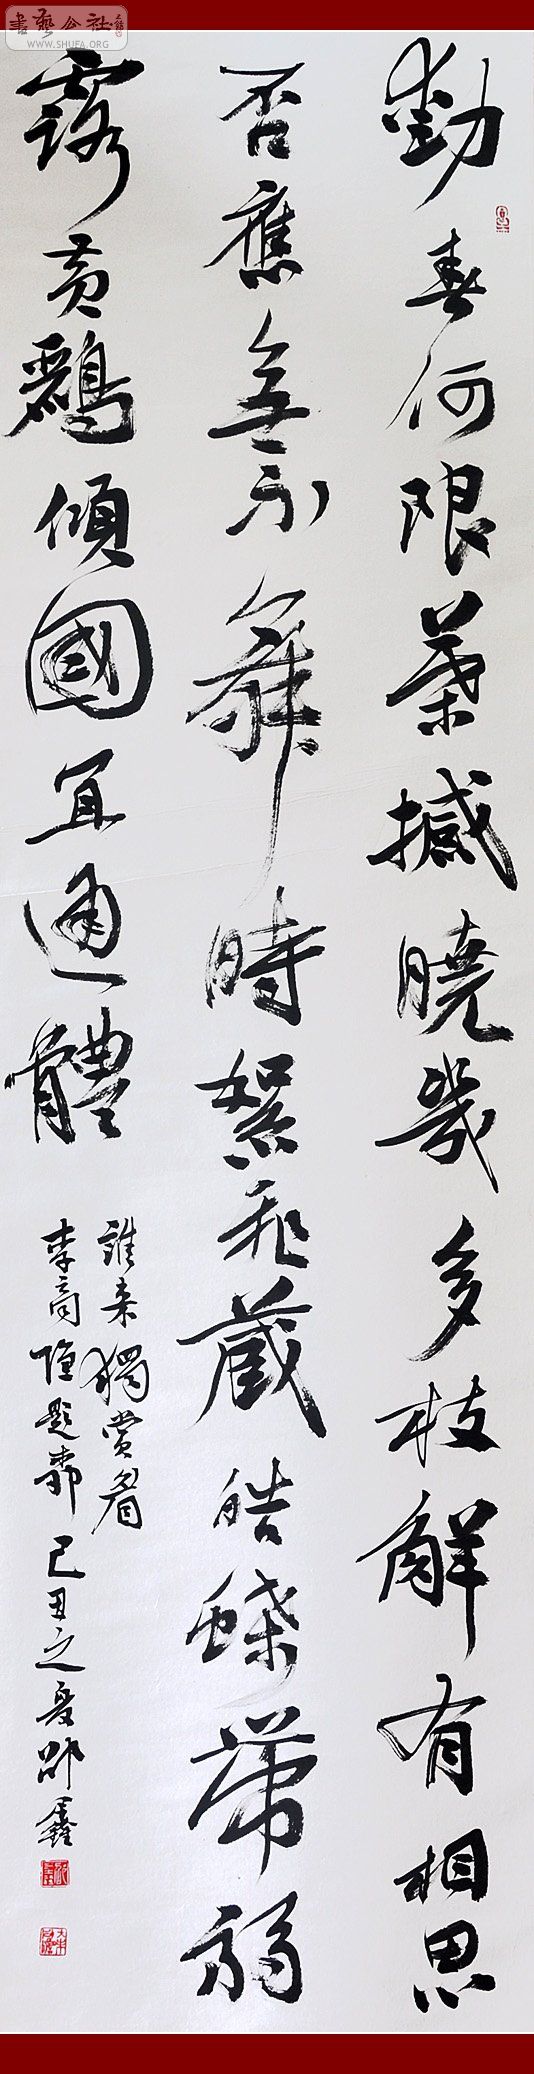 書藝公社
WWW.SHUFA.ORG
動春何限葉撼曉幾多枝解有相思
否應無不舞時絮飛藏皓蝶帶弱
露黃鸝傾國宜通體
誰来獨賞眉
李商隱題柳己丑之夏邵鑫